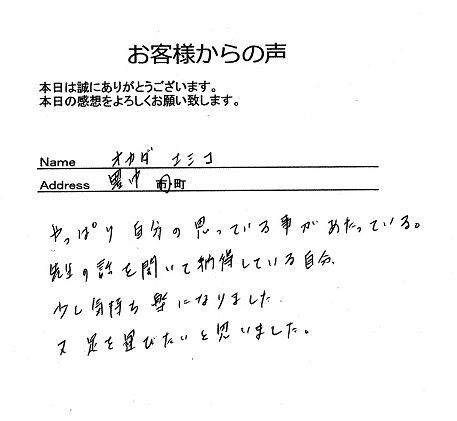 お客様からの声
本日は誠にありがとうございます。
本日の感想をよろしくお願い致します。
Name オカダ エミコ
Address 豊中 市・町
やっぱり自分の思っている事があたっている。
先生の話を聞いて納得している自分、
少し気持ち楽になりました.
又足を運びたいと思いました。